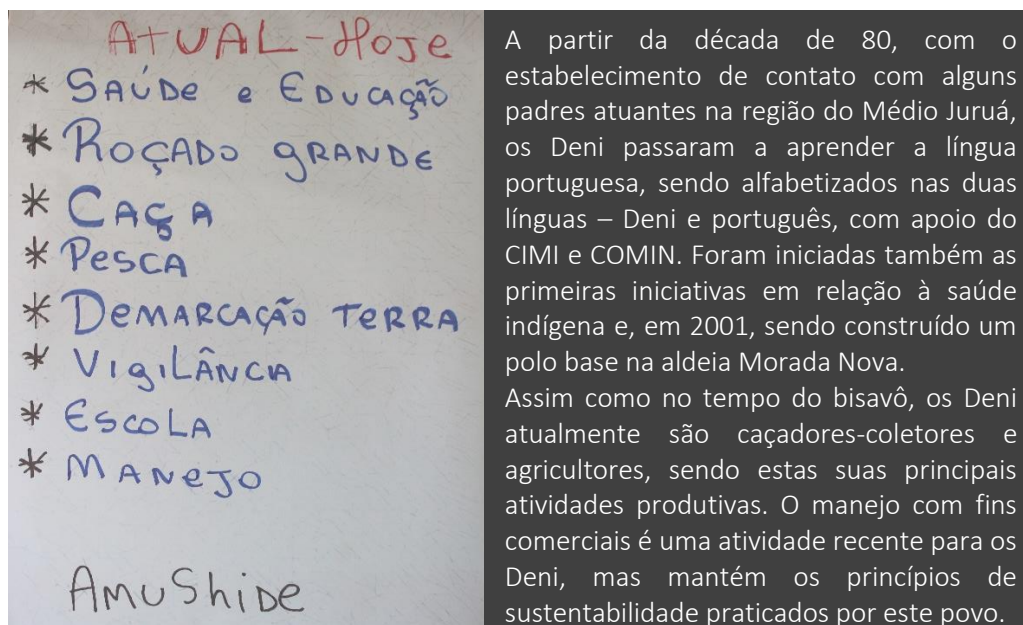 ATUAL-Hoje
* SAÚDe e EDUCAÇÃO
* ROÇADO gRANDE
* CAÇA
* PeSCA
* DeMARCAÇÃO TeRRA
* VIgiLÂNCIA
* ESCOLA
* MANeJO
AMUShiDe
A partir da década de 80, com o
estabelecimento de contato com alguns
padres atuantes na região do Médio Juruá,
os Deni passaram a aprender a língua
portuguesa, sendo alfabetizados nas duas
línguas – Deni e português, com apoio do
CIMI e COMIN. Foram iniciadas também as
primeiras iniciativas em relação à saúde
indígena e, em 2001, sendo construído um
polo base na aldeia Morada Nova.
Assim como no tempo do bisavô, os Deni
atualmente são caçadores-coletores e
agricultores, sendo estas suas principais
atividades produtivas. O manejo com fins
comerciais é uma atividade recente para os
Deni, mas mantém os princípios de
sustentabilidade praticados por este povo.